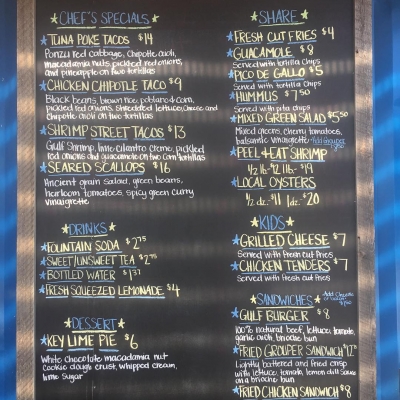 CHEF'S SPECIALS
TUNA POKE TACOS $14
Ponzu red cabbage, chipotle aioli,
macadamia nuts, pickled red onions,
and pineapple on two tortillas
CHICKEN CHIPOTLE TACO $9
Black beans, brown rice, potato+corn,
pickled red onions, shredded lettuce, cheese and
chipotle aioli on two tortillas
SHRIMP STREET TACOS $13
Gulf Shrimp, lime cilantro creme, pickled
red onions and guacamole on two corn tortillas
SEARED SCALLOPS $16
Ancient grain salad, green beans,
heirloom tomatoes, spicy green curry
vinaigrette
DRINKS
FOUNTAIN SODA $2.75
SWEET/UNSWEET TEA $2.75
BOTTLED WATER
FRESH SQUEEZED LEMONADE $4
DESSERT
KEY LIME PIE $6
White chocolate macadamia nut
cookie dough crust, whipped cream,
lime sugar
SHARE
FRESH CUT FRIES $4
GUACAMOLE $8
Served with tortilla chips
PICO DE GALLO $5
Served with tortilla chips
HUMMUS $7.50
Served with pita chips
MIXED GREEN SALAD $5.50
Mixed greens, cherry tomatoes,
balsamic vinaigrette Add Grouper
PEEL+EAT SHRIMP
1/2 lb-$12 1 lb-$19
LOCAL OYSTERS
1/2 dz-$11 1 dz-$20
KIDS
GRILLED CHEESE $7
Served with fresh cut fries
CHICKEN TENDERS $7
Served with fresh cut fries
SANDWICHES Add Cheese
GULF BURGER $8
100% natural beef, lettuce, tomato,
garlic aioli, brioche bun
FRIED GROUPER SANDWICH
Lightly battered and fried crisp
with lettuce, tomato, lemon dill sauce
on a brioche bun
FRIED CHICKEN SANDWICH $8